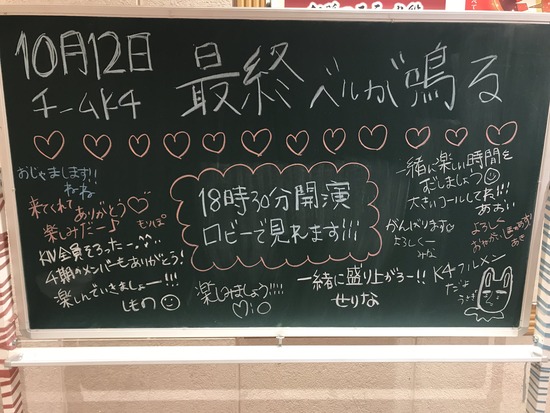 10月12日
チームK4
最終ベルが鳴る
18時30分開演
ロビーで見れます!!!
おじゃまします!!
ねね
来てくれて
ありがとう♡
楽しみだー♪
もりぽ
KⅣ全員そろったー
4期のメンバーもありがとう!
楽しんでいきましょー!!!
しもの
楽しみましょう!!!!
一緒に盛り上がろー!!
せりな
一緒に楽しい時間を
すごしましょう
大きいコールしてね!!!
あおい
がんばります♡
よろしくー
みな
よろしく
おねがい
あき
K4フルメン
だよ
うさぎ